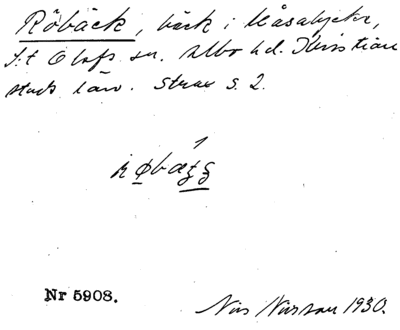 Röbäck, bäck i Råsabjer,
S:t Olofs sn. Albo hd. Kristian
stads län. Straw s. 2.
Nr 5908.
Nils Nilsson 1930.